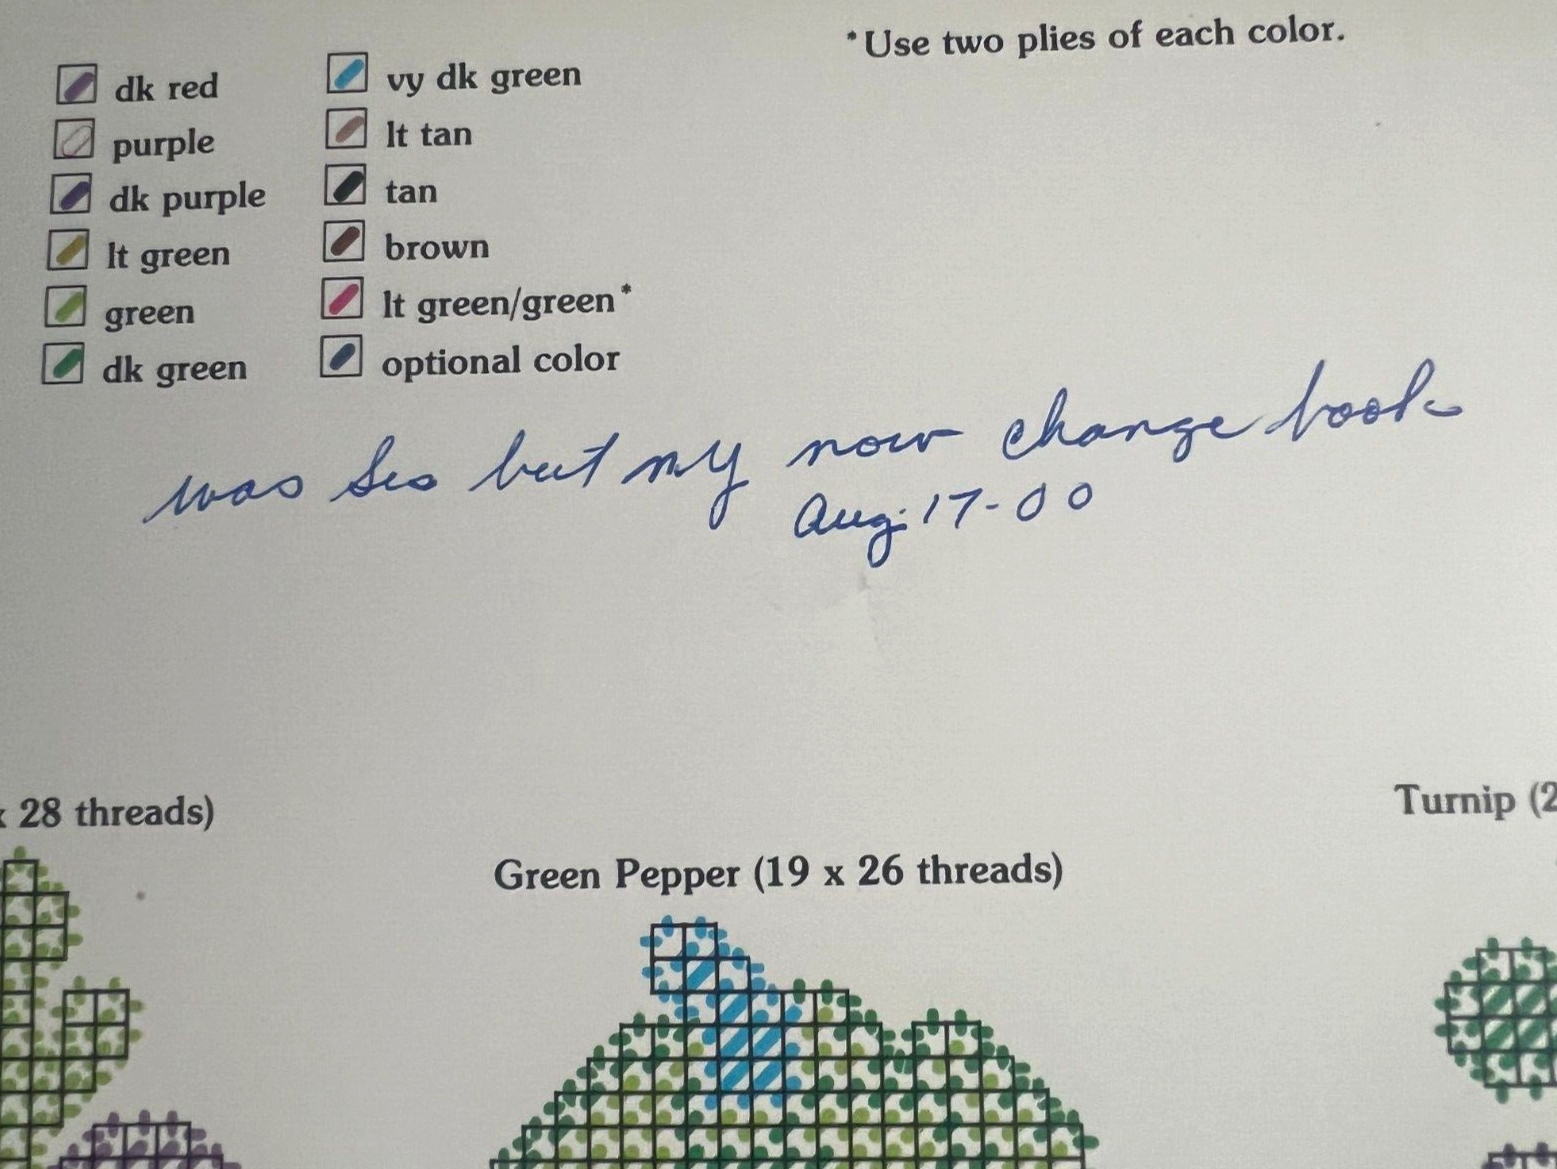 *Use two plies of each color.
dk red
purple
dk purple
lt green
green
dk green
vy dk green
lt tan
tan
brown
lt green/green*
optional color
was but my now change book
Aug. 17-00
28 threads)
Turnip (2
Green Pepper (19 x 26 threads)